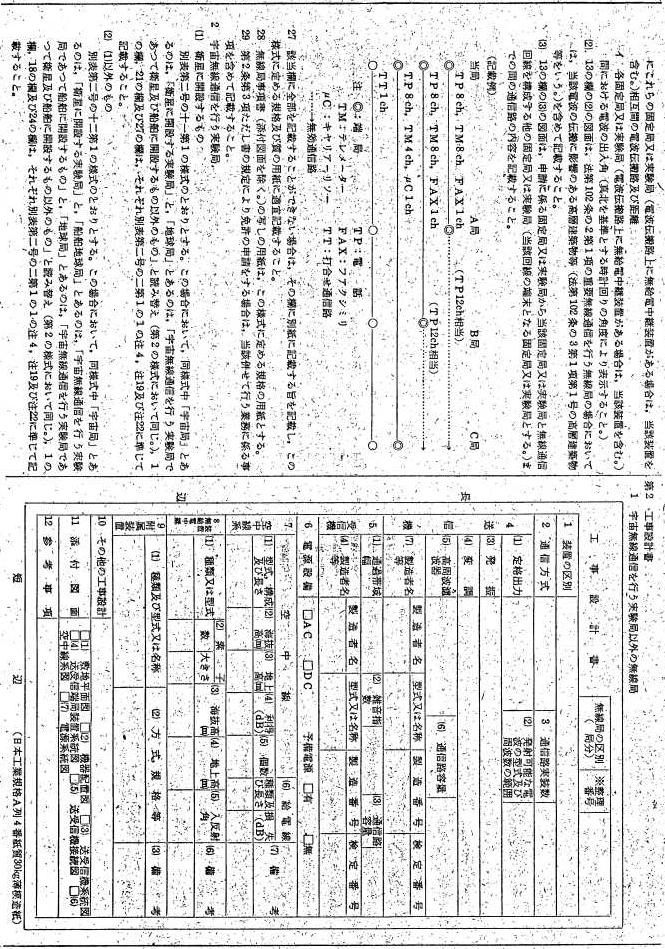 にこれらの固定局又は実験局(電波伝搬路上に無給電中継装置がある場合は、当該装置を
含む。)相互間の電波伝搬路及び距離
イ 各固定局又は実験局(電波伝搬路上に無給電中継装置がある場合は、当該装置を含む。)
間における電波の出入角(真北を基準とする時計回りの角度により表示すること。)
(2) 13の欄の(2)の図面は、法第102条の2第1項の重要無線通信を行う無線局の場合において
は、当該電波の伝搬に影響のある高層建築物等(法第102条の3第1項第1号の高層建築物
等をいう。)を含めて記載すること。
(3) 13の欄の(3)の図面は、申請に係る固定局又は実験局から当該固定局又は実験局と無線通信
回線を構成する他の固定局又は実験局(当該回線の端末となる固定局又は実験局とする。)ま
での間の通信路の内容を記載すること。
(記載例)
当局 A局 B局 C局
TP8ch, TM8ch, FAX1ch (TP12ch相当)
TP8ch, TM8ch, FAX1ch (TP12ch相当)
TP8ch, TM4ch, μC1ch
TT1ch
注 ◎:端局 TP:電話
TM:テレメーター FAX:ファクシミリ
μC:キャリアリレー TT:打合せ通信路
→無効通信路
27 該当欄に全部を記載することができない場合は、その欄に別紙に記載する旨を記載し、この
様式に定める規格及び質の用紙に適宜記載すること。
28 無線局事項書(添付図面を除く。)の写しの用紙は、この様式に定める規格の用紙とする。
29 第2条第3項ただし書の規定により免許の申請をする場合は、当該併せて行う業務に係る事
項を含めて記載すること。
2 宇宙無線通信を行う実験局
(1) 衛星に開設するもの
別表第二号の十一第1の様式のとおりとする。この場合において、同様式中「宇宙局」とあ
るのは、「衛星に開設する実験局」と、「地球局」とあるのは、「宇宙無線通信を行う実験局で
あつて衛星及び船舶に開設するもの以外のもの」と読み替え(第2の様式において同じ。)、1
の欄、21の欄及び27の欄は、それぞれ別表第二号の二第1の1の注4、注19及び注22に準じて
記載すること。
(2) (1)以外のもの
別表第二号の十二第1の様式のとおりとする。この場合において、同様式中「宇宙局」とあ
るのは、「衛星に開設する実験局」と、「船舶地球局」とあるのは、「宇宙無線通信を行う実験
局であつて船舶に開設するもの」と、「地球局」とあるのは、「宇宙無線通信を行う実験局であ
つて衛星及び船舶に開設するもの以外のもの」と読み替え(第2の様式において同じ。)、1の
欄、18の欄及び24の欄は、それぞれ別表第二号の二第1の1の注4、注19及び注22に準じて記
載すること。
第2 工事設計書
1 宇宙無線通信を行う実験局以外の無線局
長 辺
工事設計書 無線局の区別(局分) ※整理番号
1 装置の区別
2 通信方式 3 通信路実装数
4 送信機
(1) 定格出力 (2) 発射可能な電波の型式及び周波数の範囲
(3) 発振
(4) 変調
(5) 高周波濾波器 (6) 通信路容量
(7) 製造者名等 製造者名 型式又は名称 製造番号 検定番号
5 受信機
(1) 通過帯域幅 (2) 雑音指数 (3) 通信路容量
(4) 製造者名等 製造者名 型式又は名称 製造番号 検定番号
6 電源設備 □AC □DC 予備電源 □有 □無
7 空中線系
空中線 (6) 給電線 (7) 備考
(1) 型式、構成及び長さ (2) 海抜高m (3) 地上高m (4) 利得(dB) (5) 個数 種類及び長さ 損失(dB)
8 無給電中継
(1) 種類又は型式 (2) 素子 数 大きさ (3) 海抜高 (4) 地上高 (5) 入反射角 (6) 備考
9 附属装置 (1) 種類及び型式又は名称 (2) 方式規格等 (3) 備考
10 その他の工事設計
11 添付図面 □(1) 敷地平面図 □(2) 機器配置図 □(3) 送受信機系統図
□(4) 送受信局装置系統図 □(5) 送受信機接続図 □(6)
空中線系図 □(7) 電源系統図
12 参考事項
短 辺 (日本工業規格A列4番紙質30kg薄模造紙)